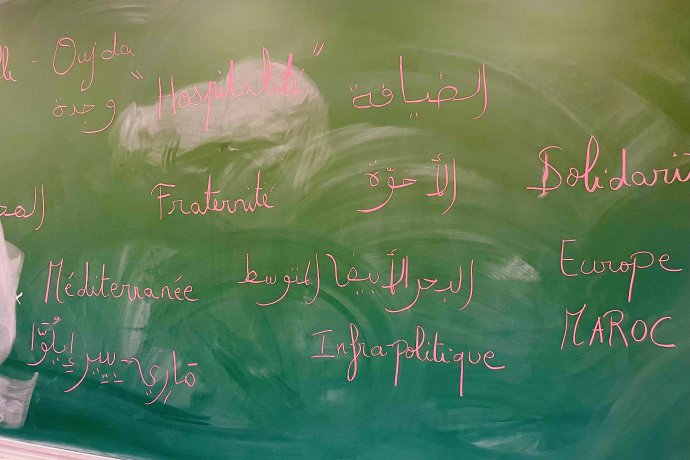 lle - Oujda
وجدة "Hospitalité" الضيافة
Fraternité الأخوّة Solidarit
Méditerranée البحر الأبيض المتوسط Europe
MAROC
مَارِي-بِيير Infrapolitique